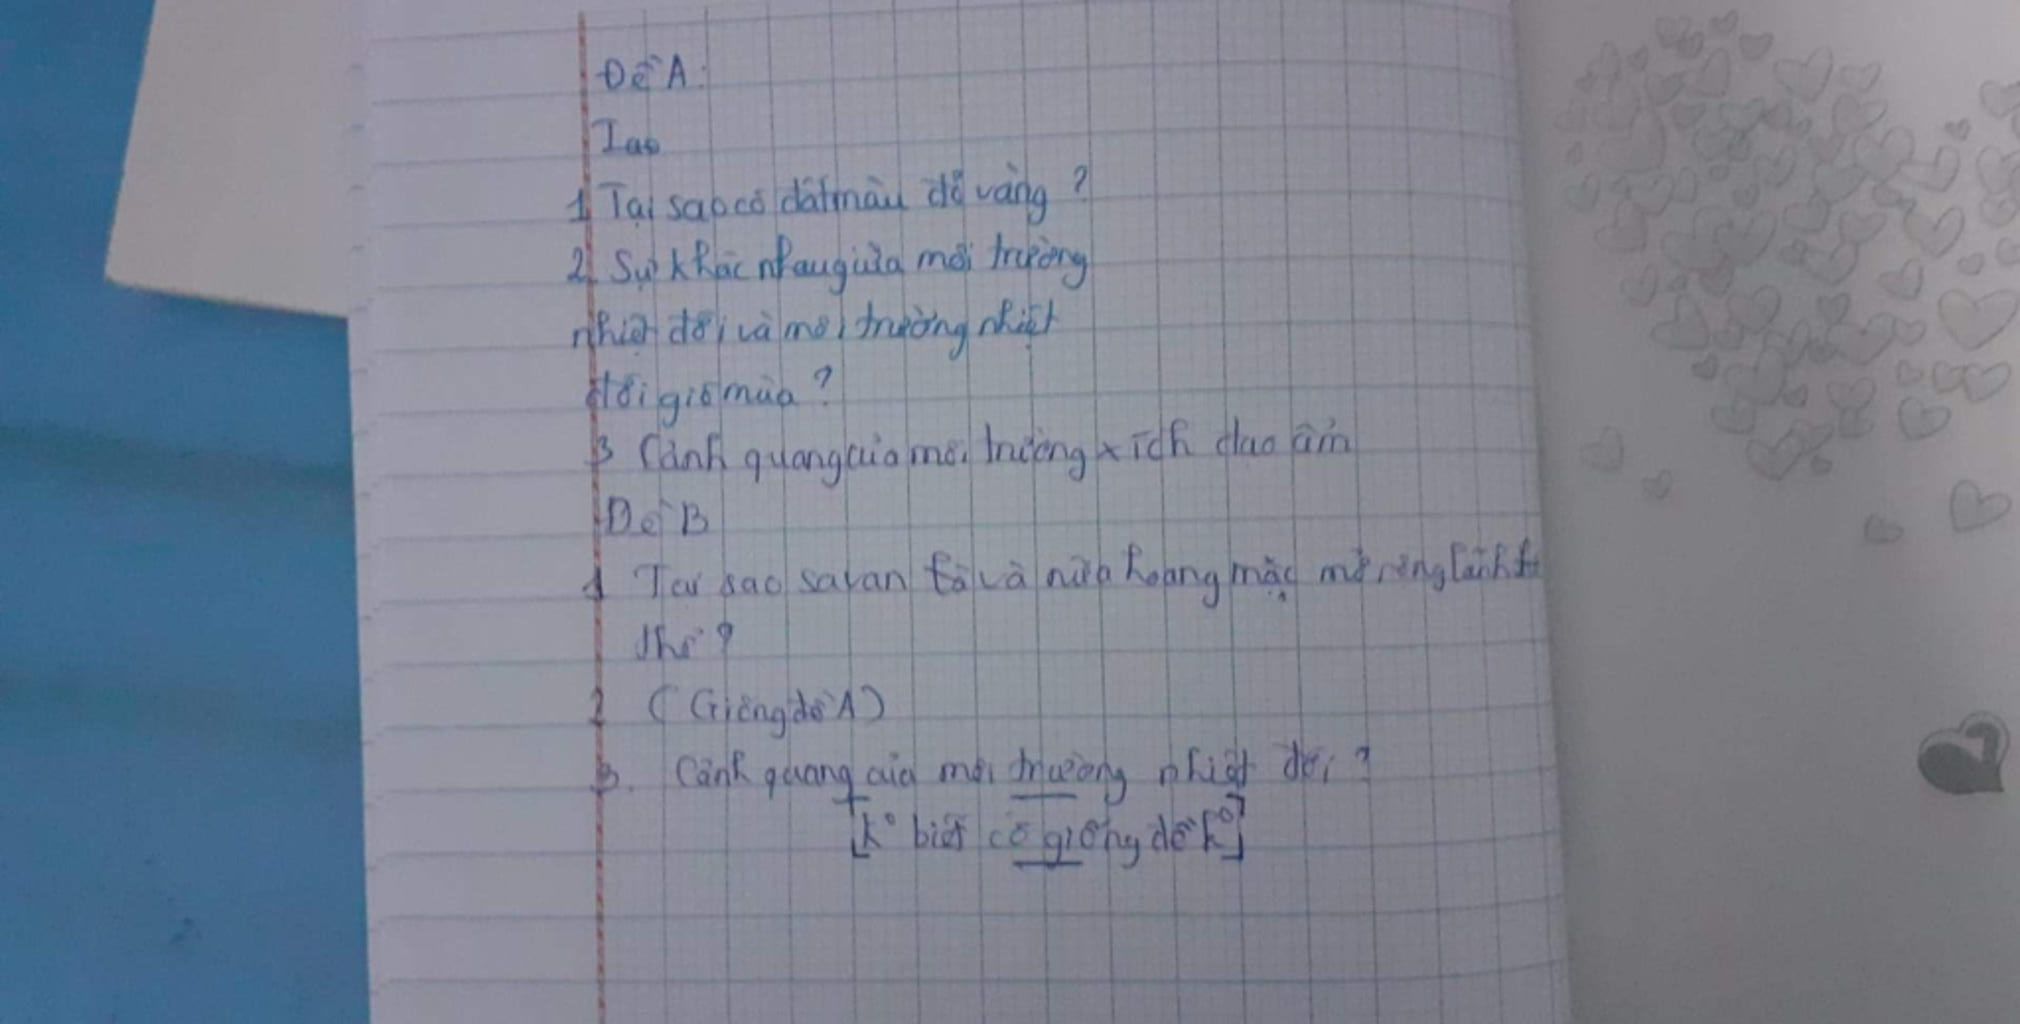 Đề A:
Tao
1 Tại sao có đất màu đỏ vàng ?
2 Sự khác nhau giữa môi trường
nhiệt đới và môi trường nhiệt
đới gió mùa ?
3 Cảnh quang của môi trường xích đạo ẩm
Đề B
1 Tại sao savan và nửa hoang mạc mở rộng
thế ?
2 (Giống đề A)
3. Cảnh quang của môi trường nhiệt đới ?
[k° biết có giống đề k°]